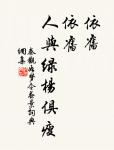 依舊
依舊
人與綠楊俱瘦
秦觀如夢令春景詞典
網集